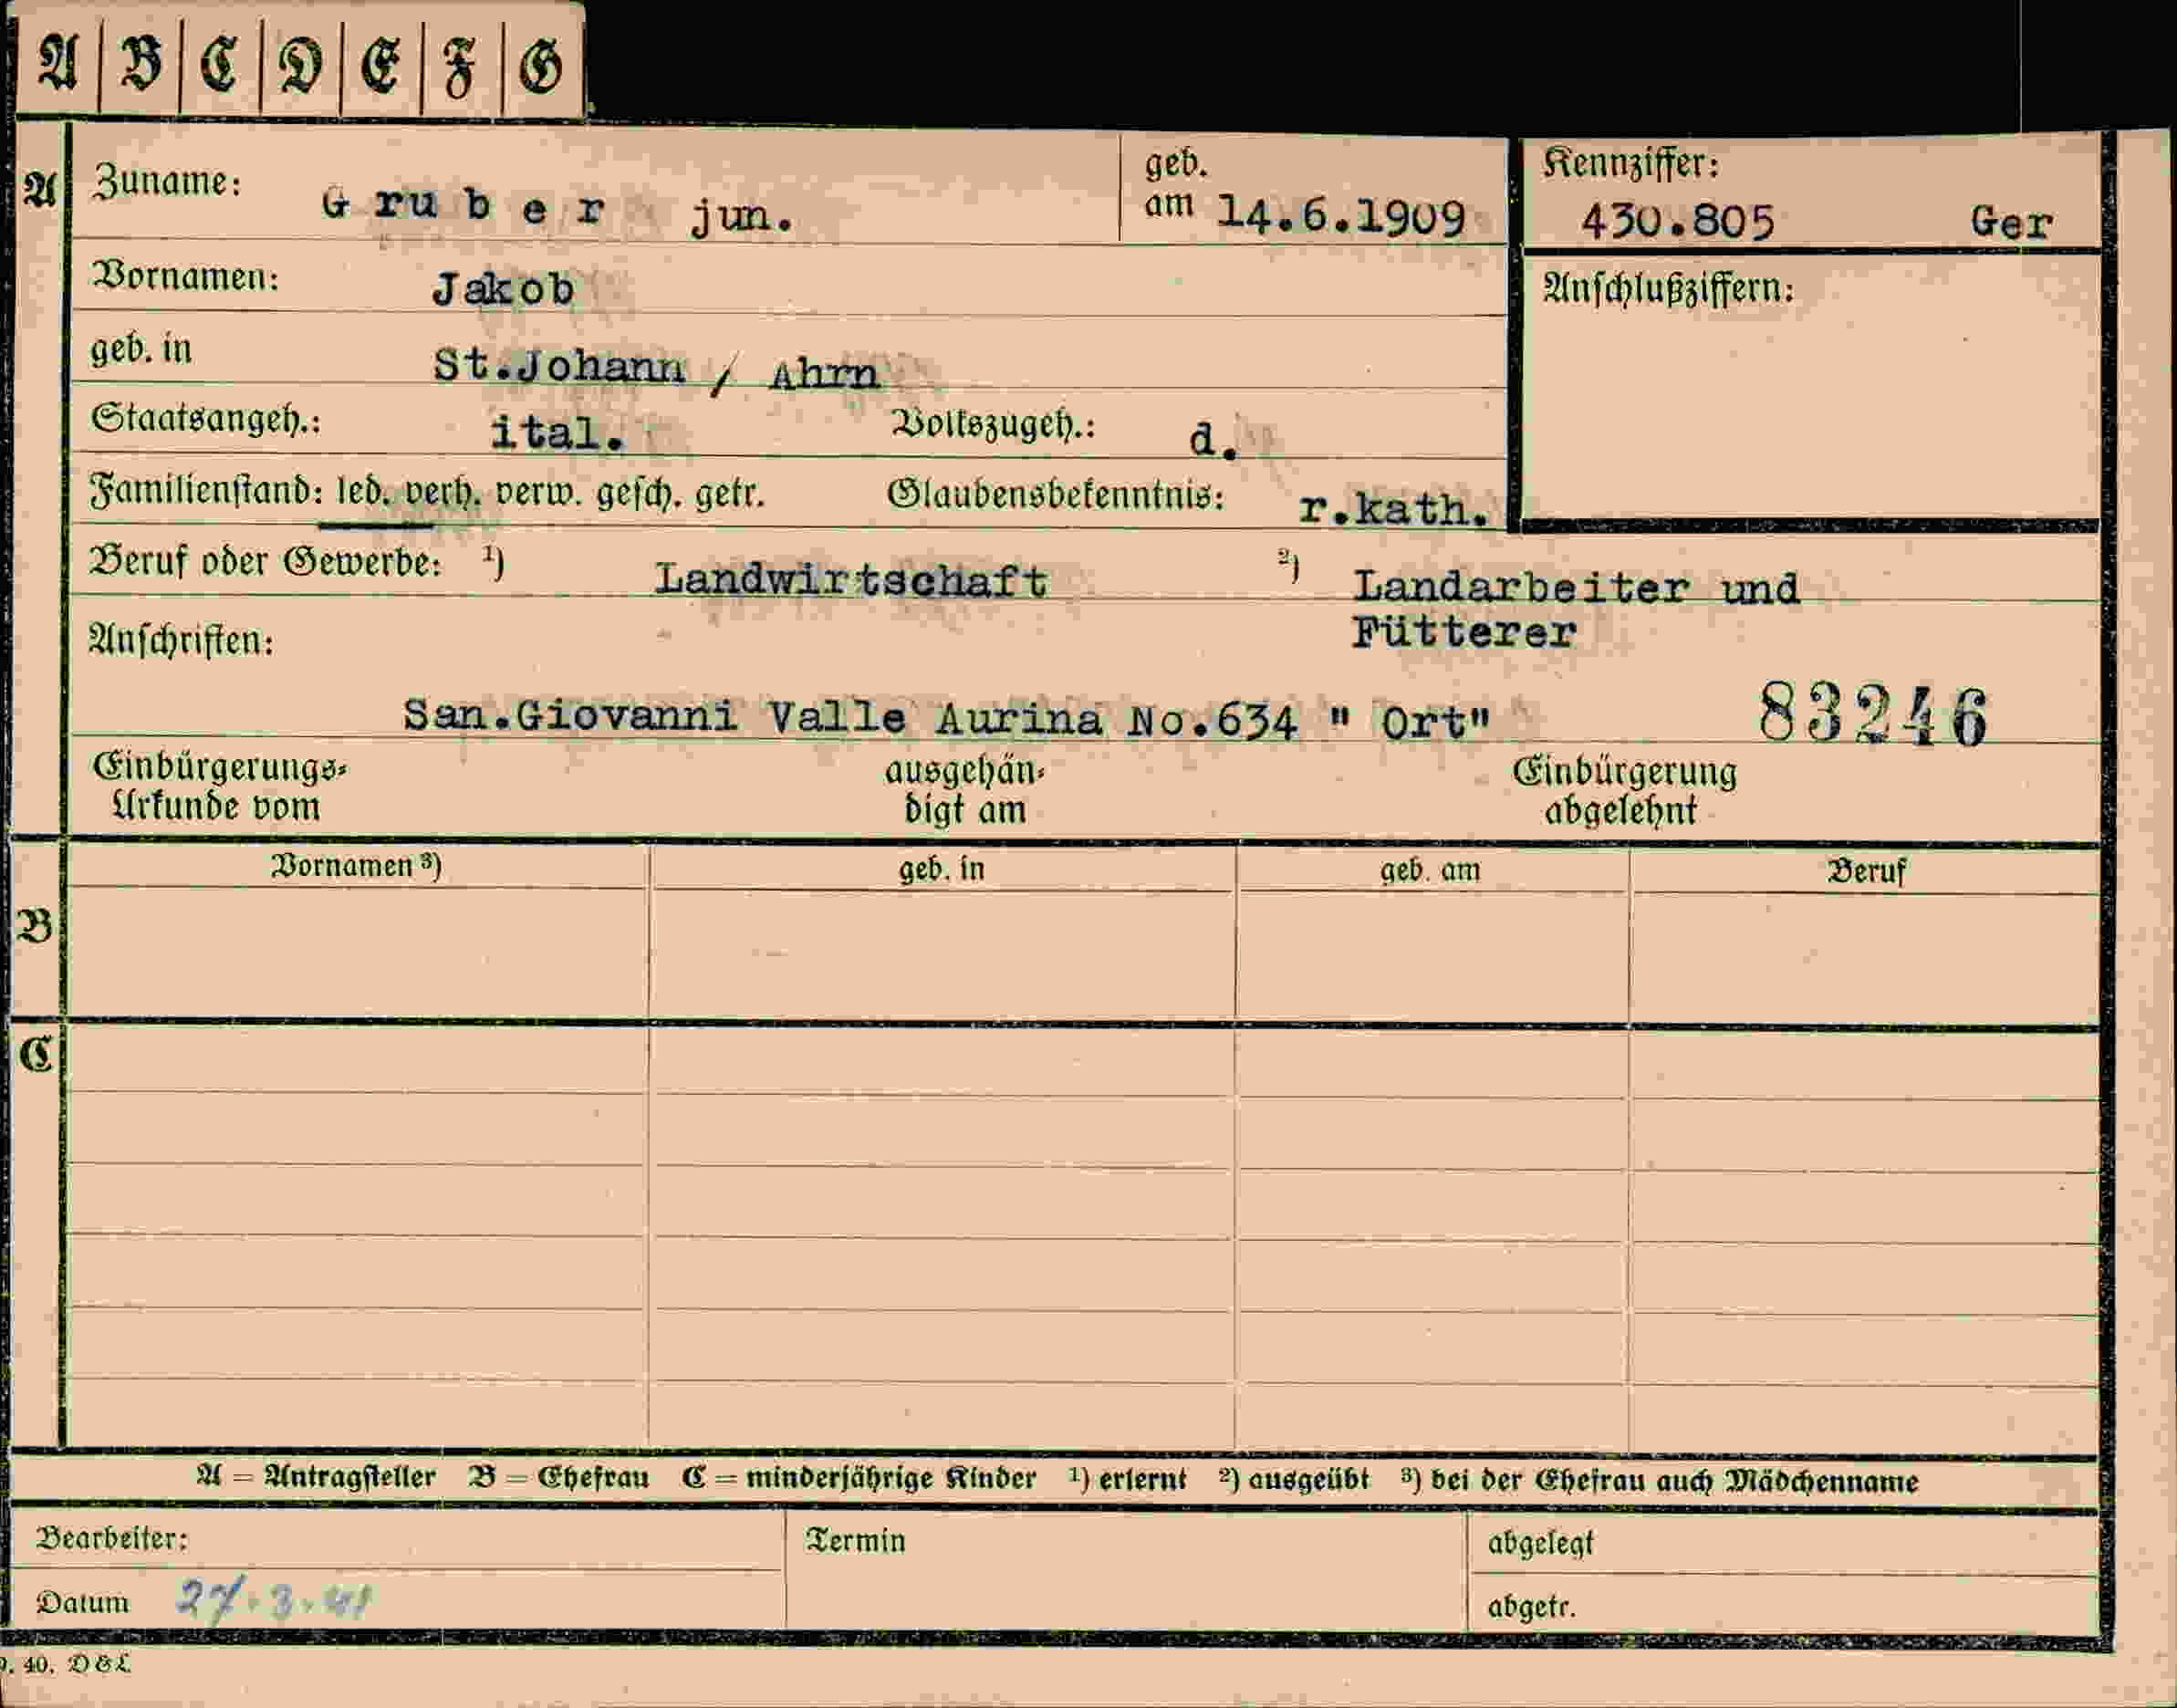 A B C D E F G
A Zuname: Gruber jun. geb. am 14.6.1909 Kennziffer: 430.805 Ger
Vornamen: Jakob Anschlußziffern:
geb. in St.Johann / Ahrn
Staatsangeh.: ital. Volkszugeh.: d.
Familienstand: led. verh. verw. gesch. getr. Glaubensbekenntnis: r.kath.
Beruf oder Gewerbe: 1) Landwirtschaft 2) Landarbeiter und
Fütterer
Anschriften:
San.Giovanni Valle Aurina No.634 " Ort" 83246
Einbürgerungs- ausgehän- Einbürgerung
Urkunde vom digt am abgelehnt
Vornamen 3) geb. in geb. am Beruf
B
C
A = Antragsteller B = Ehefrau C = minderjährige Kinder 1) erlernt 2) ausgeübt 3) bei der Ehefrau auch Mädchenname
Bearbeiter: Termin abgelegt
Datum 27.3.41 abgetr.
40. D&L